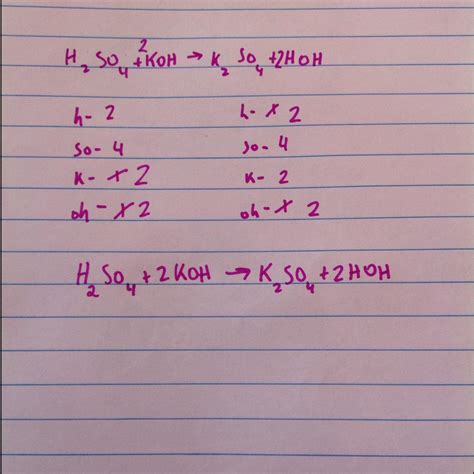 H₂SO₄+2KOH → K₂SO₄+2HOH
h- 2 h- x 2
so- 4 so- 4
k- x 2 k- 2
oh- x 2 oh- x 2
H₂SO₄+2KOH → K₂SO₄+2HOH